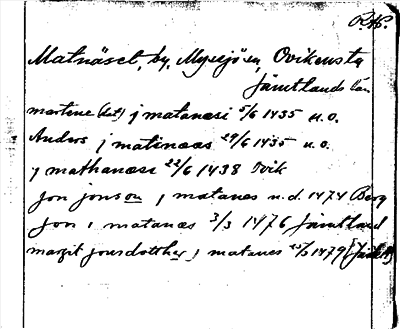 R.W.
Matnäset, by, Myssjö sn, Ovikens tg
Jämtlands län
martine (dat) j matanæsi 5/6 1435 u.o.
Anders j matinæas 29/6 1435 u.o.
j mathanæse 22/6 1438 Ovik
jon jonson j matanes n.d. 1474 Berg
jon i matanæs 3/3 1476 Jämtland
margit jonsdotther j matanes 1479